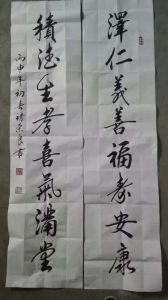 澤仁義善福泰安康
積德生孝喜氣滿堂
丙申年初春